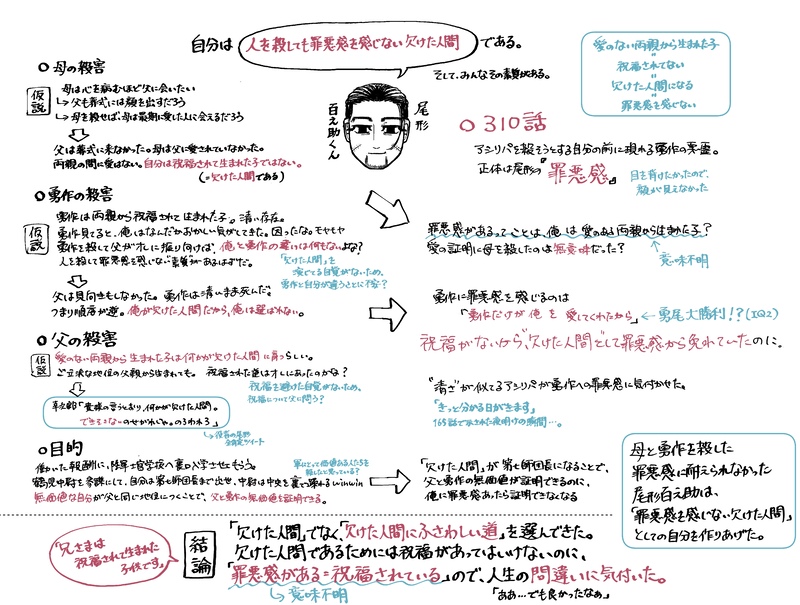 自分は 人を殺しても罪悪感を感じない欠けた人間 である。
そして、みんなその素質がある。
尾形
百之助くん
愛のない両親から生まれた子
=
祝福されてない
=
欠けた人間になる
=
罪悪感を感じない
○ 母の殺害
仮説
母は心を病むほど父に会いたい
↳ 父も葬式には顔を出すだろう
↳ 母を殺せば、母は最期に愛した人に会えるだろう
父は葬式に来なかった。母は父に愛されていなかった。
両親の間に愛はない。自分は祝福されて生まれた子ではない。
(=欠けた人間である)
○ 勇作の殺害
仮説
勇作は両親から祝福されて生まれた子。清い存在。
勇作見てると、俺はなんだかおかしい気がしてきた。困ったな。モヤモヤ
勇作を殺して父がオレに振り向けば、俺と勇作の違いは何もないよな?
人を殺して罪悪感を感じない素質があるはずだ。
「欠けた人間」を
演じてる自覚がないため、
勇作と自分が違うことに不安?
父は見向きもしなかった。勇作は清いまま死んだ。
つまり順序が逆。俺が欠けた人間だから、俺は選ばれない。
○ 父の殺害
仮説
愛のない両親から生まれた子は何かが欠けた人間に育つらしい。
ご立派な地位の父親から生まれても。祝福された道はオレにあったのかな?
祝福を避けた自覚がないため、
祝福について父に問う?
幸次郎「貴様の言うとおり、何かが欠けた人間。
できそこないのせがれじゃ。のろわれろ」
○ 目的
働いた報酬に、陸軍士官学校へ裏口入学させてもらう。
鶴見中尉を参謀にして、自分は第七師団長まで出世、中尉は中央を裏で操れるwinwin
無価値な自分が父と同じ地位につくことで、父と勇作の無価値を証明できる。
○ 310話
アシリパを殺そうとする自分の前に現れる勇作の幽霊。
正体は尾形の『罪悪感』
目を背けたかったので、
顔が見えなかった
罪悪感があるってことは、俺は愛のある両親から生まれた子?
愛の証明に母を殺したのは無意味だった?
↑
意味不明
勇作に罪悪感を感じるのは
「勇作だけが俺を愛してくれたから」
← 勇尾大勝利!?(IQ2)
祝福がないから、“欠けた人間”として罪悪感から免れていたのに。
“清さ”が似てるアシリパが勇作への罪悪感に気付かせた。
「きっと分かる日がきます」
165話で示された夜明けの瞬間…。
「欠けた人間」が第七師団長になることで、
父と勇作の無価値が証明できるのに、
俺に罪悪感あったら証明できなくなる
母と勇作を殺した
罪悪感に耐えられなかった
尾形百之助は、
「罪悪感を感じない欠けた人間」
としての自分を作りあげた。
「兄さまは
祝福されて生まれた
子供です」
結論
「欠けた人間」でなく、「欠けた人間にふさわしい道」を選んできた。
欠けた人間であるためには祝福があってはいけないのに、
「罪悪感がある=祝福されている」ので、人生の間違いに気付いた。
↳ 意味不明
「ああ…でも良かったなぁ」